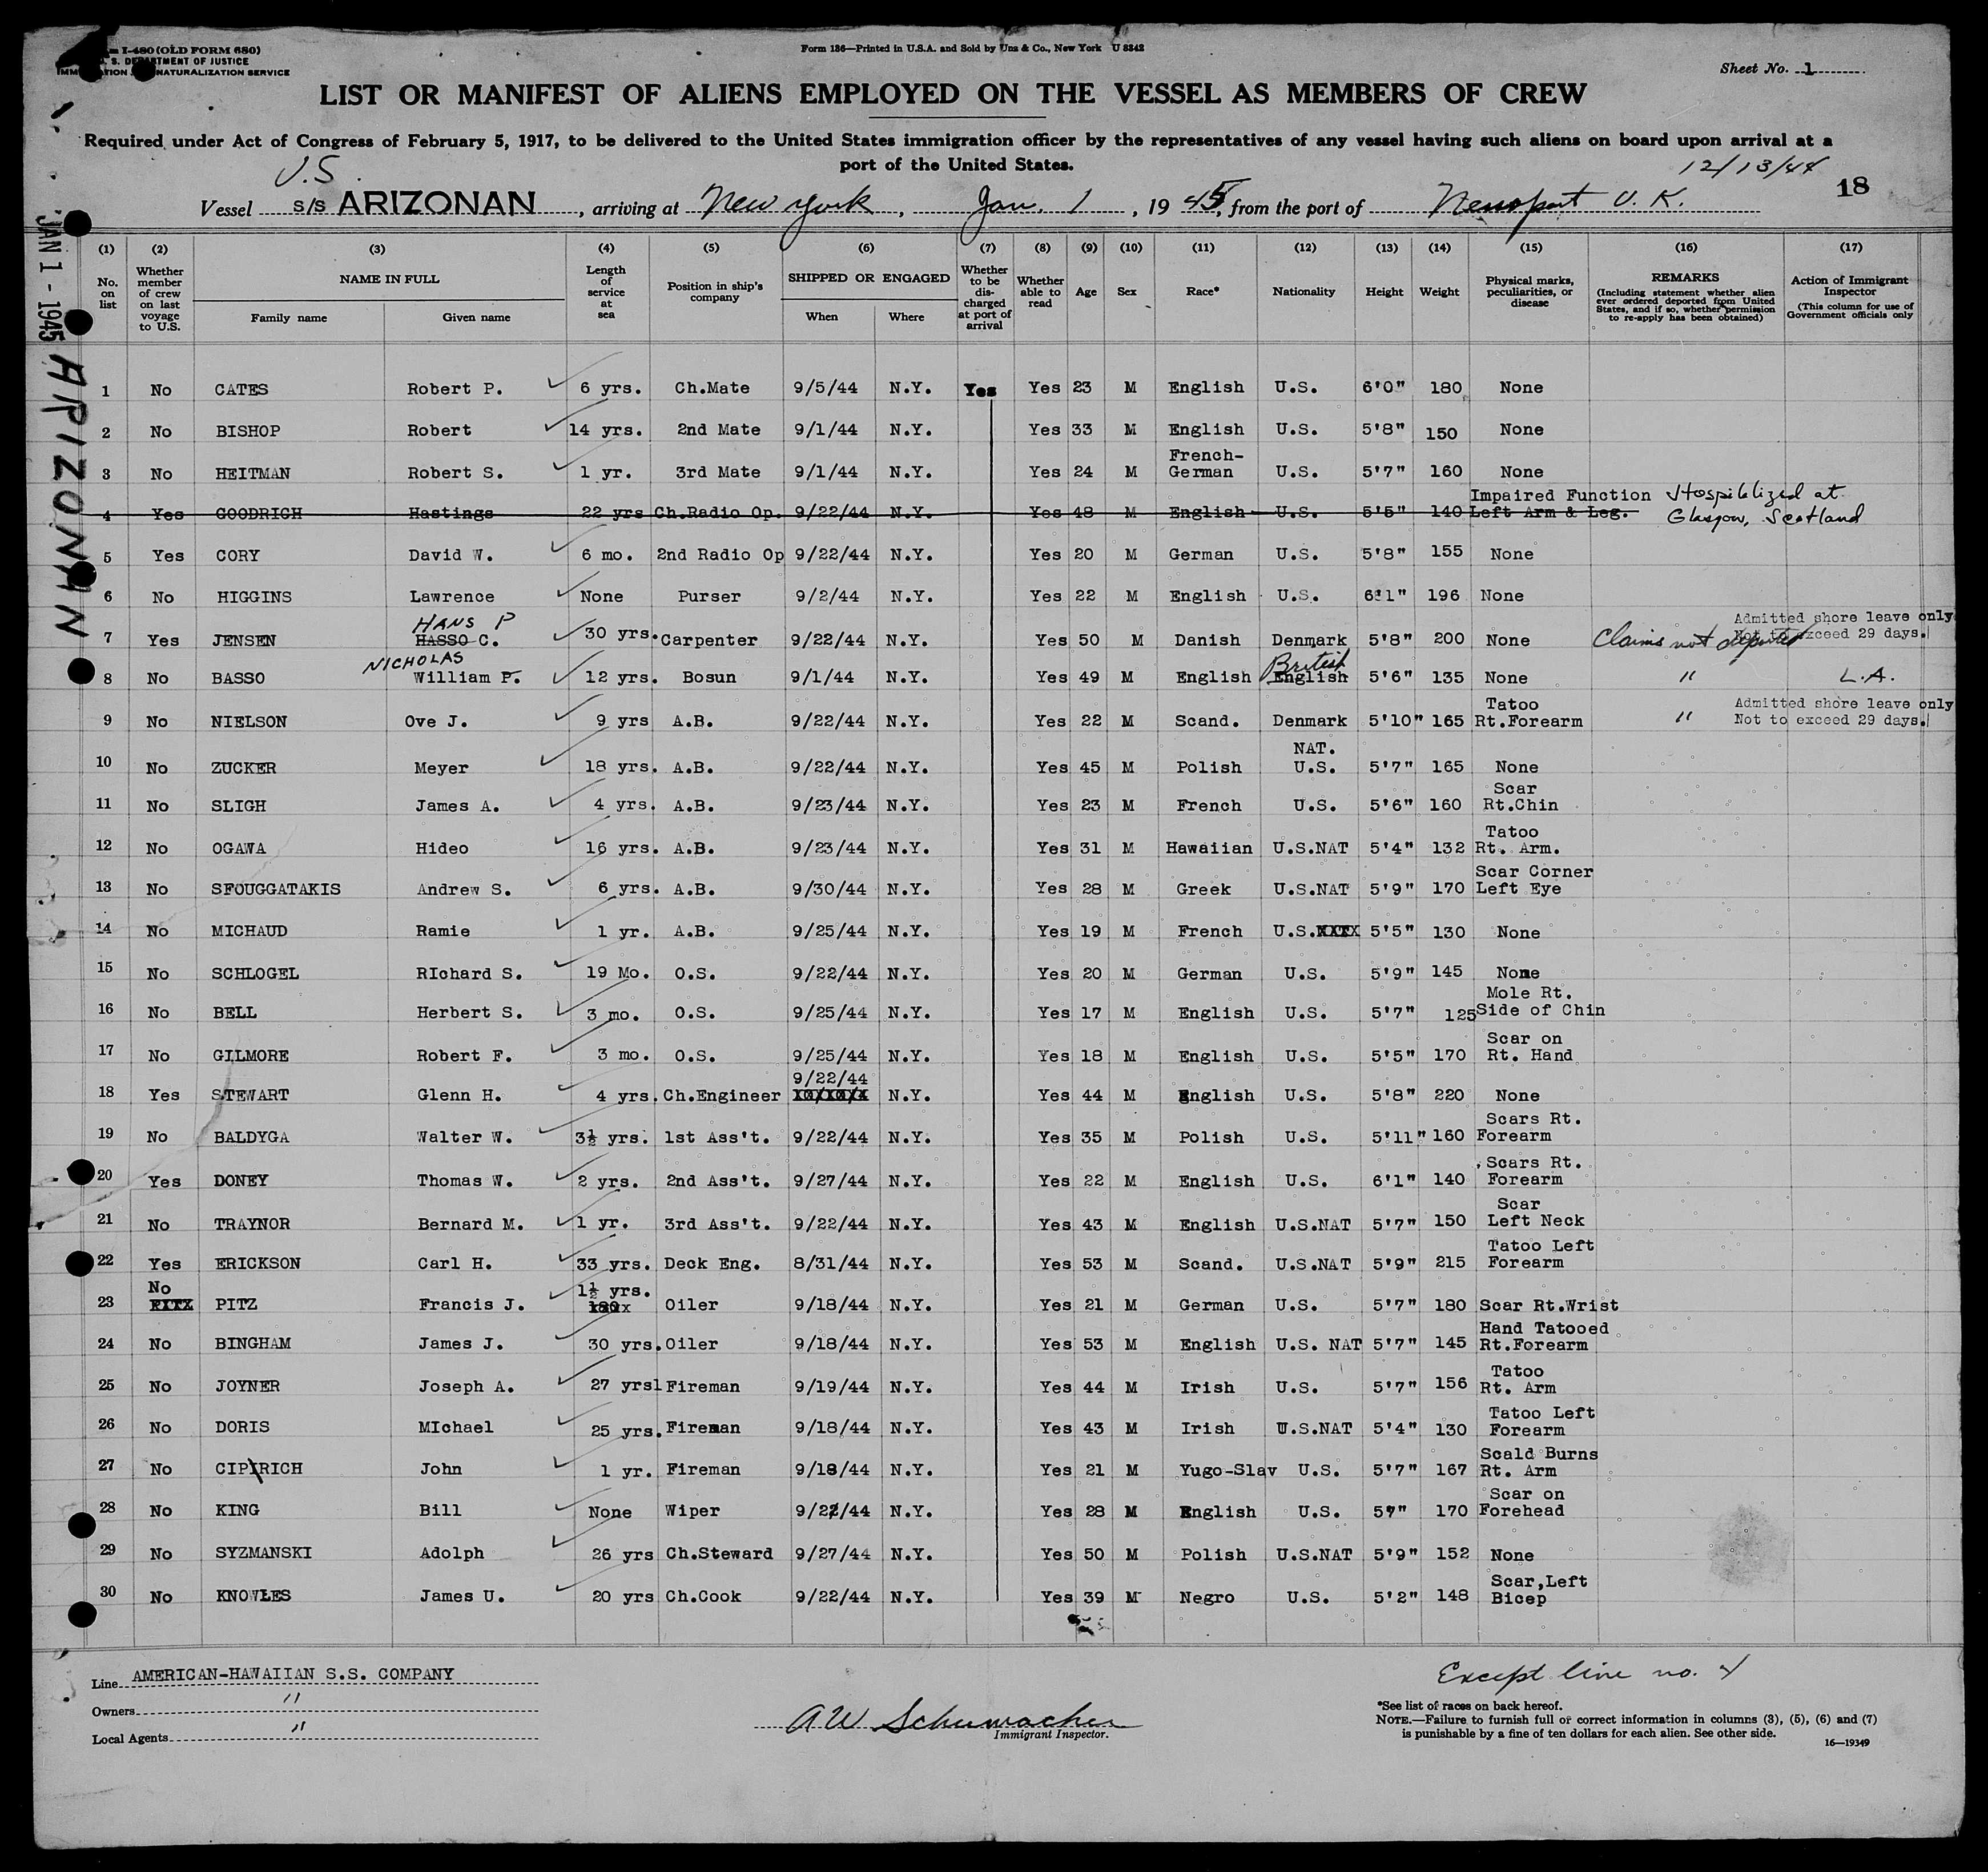 I-480 (OLD FORM 680)
U. S. DEPARTMENT OF JUSTICE
IMMIGRATION NATURALIZATION SERVICE
Form 136—Printed in U.S.A. and Sold by Unz & Co., New York U 8342
Sheet No. 1
LIST OR MANIFEST OF ALIENS EMPLOYED ON THE VESSEL AS MEMBERS OF CREW
Required under Act of Congress of February 5, 1917, to be delivered to the United States immigration officer by the representatives of any vessel having such aliens on board upon arrival at a
port of the United States.
U.S.
12/13/44
18
Vessel S/S ARIZONAN, arriving at New York, Jan. 1, 1945, from the port of Newport U. K.
JAN 1 - 1945 ARIZONAN
(1) (2) (3) (4) (5) (6) (7) (8) (9) (10) (11) (12) (13) (14) (15) (16) (17)
No. on list
Whether member of crew on last voyage to U.S.
NAME IN FULL
Family name
Given name
Length of service at sea
Position in ship's company
SHIPPED OR ENGAGED
When
Where
Whether to be discharged at port of arrival
Whether able to read
Age
Sex
Race*
Nationality
Height
Weight
Physical marks, peculiarities, or disease
REMARKS
(Including statement whether alien ever ordered deported from United States, and if so, whether permission to re-apply has been obtained)
Action of Immigrant Inspector
(This column for use of Government officials only
1 No CATES Robert P. 6 yrs. Ch.Mate 9/5/44 N.Y. Yes Yes 23 M English U.S. 6'0" 180 None
2 No BISHOP Robert 14 yrs. 2nd Mate 9/1/44 N.Y. Yes 33 M English U.S. 5'8" 150 None
3 No HEITMAN Robert S. 1 yr. 3rd Mate 9/1/44 N.Y. Yes 24 M French-German U.S. 5'7" 160 None
4 Yes GOODRICH Hastings 22 yrs Ch.Radio Op. 9/22/44 N.Y. Yes 48 M English U.S. 5'5" 140 Impaired Function Left Arm & Leg. Hospitalized at Glasgow, Scotland
5 Yes CORY David W. 6 mo. 2nd Radio Op 9/22/44 N.Y. Yes 20 M German U.S. 5'8" 155 None
6 No HIGGINS Lawrence None Purser 9/2/44 N.Y. Yes 22 M English U.S. 6'1" 196 None
7 Yes JENSEN HANS P HASSO C. 30 yrs. Carpenter 9/22/44 N.Y. Yes 50 M Danish Denmark 5'8" 200 None Claims not deported Admitted shore leave only Not to exceed 29 days.
8 No BASSO NICHOLAS William P. 12 yrs. Bosun 9/1/44 N.Y. Yes 49 M English British English 5'6" 135 None " L.A.
9 No NIELSON Ove J. 9 yrs A.B. 9/22/44 N.Y. Yes 22 M Scand. Denmark 5'10" 165 Tatoo Rt.Forearm " Admitted shore leave only Not to exceed 29 days.
10 No ZUCKER Meyer 18 yrs. A.B. 9/22/44 N.Y. Yes 45 M Polish NAT. U.S. 5'7" 165 None
11 No SLIGH James A. 4 yrs. A.B. 9/23/44 N.Y. Yes 23 M French U.S. 5'6" 160 Scar Rt.Chin
12 No OGAWA Hideo 16 yrs. A.B. 9/23/44 N.Y. Yes 31 M Hawaiian U.S.NAT 5'4" 132 Tatoo Rt. Arm.
13 No SFOUGGATAKIS Andrew S. 6 yrs. A.B. 9/30/44 N.Y. Yes 28 M Greek U.S.NAT 5'9" 170 Scar Corner Left Eye
14 No MICHAUD Ramie 1 yr. A.B. 9/25/44 N.Y. Yes 19 M French U.S. 5'5" 130 None
15 No SCHLOGEL RIchard S. 19 Mo. O.S. 9/22/44 N.Y. Yes 20 M German U.S. 5'9" 145 None
16 No BELL Herbert S. 3 mo. O.S. 9/25/44 N.Y. Yes 17 M English U.S. 5'7" 125 Mole Rt. Side of Chin
17 No GILMORE Robert F. 3 mo. O.S. 9/25/44 N.Y. Yes 18 M English U.S. 5'5" 170 Scar on Rt. Hand
18 Yes STEWART Glenn H. 4 yrs. Ch.Engineer 9/22/44 N.Y. Yes 44 M English U.S. 5'8" 220 None
19 No BALDYGA Walter W. 3½ yrs. 1st Ass't. 9/22/44 N.Y. Yes 35 M Polish U.S. 5'11" 160 Scars Rt. Forearm
20 Yes DONEY Thomas W. 2 yrs. 2nd Ass't. 9/27/44 N.Y. Yes 22 M English U.S. 6'1" 140 Scars Rt. Forearm
21 No TRAYNOR Bernard M. 1 yr. 3rd Ass't. 9/22/44 N.Y. Yes 43 M English U.S.NAT 5'7" 150 Scar Left Neck
22 Yes ERICKSON Carl H. 33 yrs. Deck Eng. 8/31/44 N.Y. Yes 53 M Scand. U.S.NAT 5'9" 215 Tatoo Left Forearm
23 No PITZ Francis J. 1½ yrs. Oiler 9/18/44 N.Y. Yes 21 M German U.S. 5'7" 180 Scar Rt.Wrist
24 No BINGHAM James J. 30 yrs. Oiler 9/18/44 N.Y. Yes 53 M English U.S. NAT 5'7" 145 Hand Tatooed Rt.Forearm
25 No JOYNER Joseph A. 27 yrsl Fireman 9/19/44 N.Y. Yes 44 M Irish U.S. 5'7" 156 Tatoo Rt. Arm
26 No DORIS MIchael 25 yrs. Fireman 9/18/44 N.Y. Yes 43 M Irish U.S.NAT 5'4" 130 Tatoo Left Forearm
27 No CIPIRICH John 1 yr. Fireman 9/18/44 N.Y. Yes 21 M Yugo-Slav U.S. 5'7" 167 Scald Burns Rt. Arm
28 No KING Bill None Wiper 9/22/44 N.Y. Yes 28 M English U.S. 57" 170 Scar on Forehead
29 No SYZMANSKI Adolph 26 yrs Ch.Steward 9/27/44 N.Y. Yes 50 M Polish U.S.NAT 5'9" 152 None
30 No KNOWLES James U. 20 yrs Ch.Cook 9/22/44 N.Y. Yes 39 M Negro U.S. 5'2" 148 Scar,Left Bicep
Line AMERICAN-HAWAIIAN S.S. COMPANY
Owners "
Local Agents "
AW Schumacher
Immigrant Inspector.
Except line no. 4
*See list of races on back hereof.
NOTE.—Failure to furnish full or correct information in columns (3), (5), (6) and (7)
is punishable by a fine of ten dollars for each alien. See other side.
16—19349